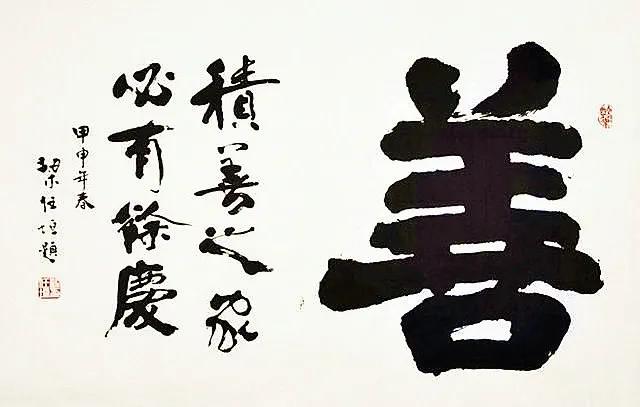 善
積善之家
必有餘慶
甲申年春
梁任垣題